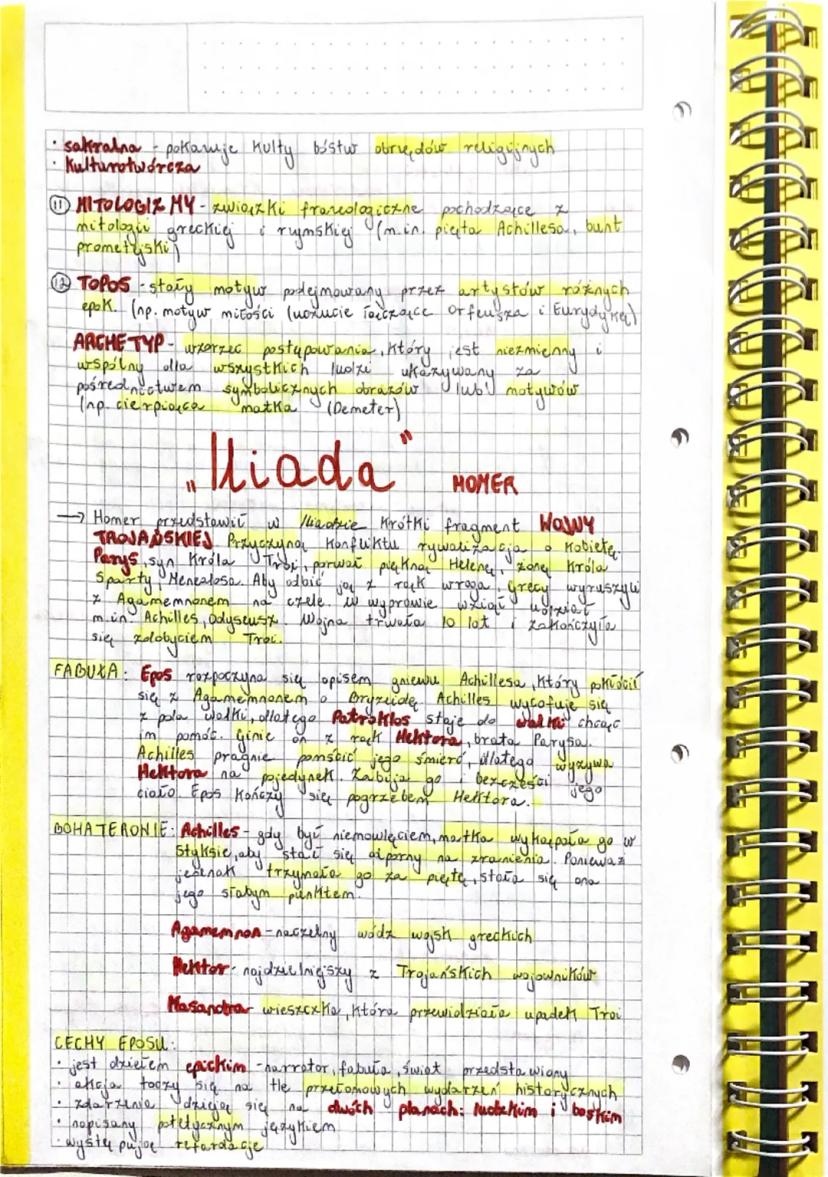 · sakralna - pokazuje kulty bóstw obrzędów religijnych
· kulturotwórcza
⑪ MITOLOGIZMY - związki frazeologiczne pochodzące z
mitologii greckiej i rzymskiej (m.in. pięta Achillesa, bunt
prometejski)
⑫ TOPOS - stały motyw podejmowany przez artystów różnych
epok. (np. motyw miłości (uczucie łączące Orfeusza i Eurydykę)
ARCHETYP - wzorzec postępowania, który jest niezmienny i
wspólny dla wszystkich ludzi ukazywany za
pośrednictwem symbolicznych obrazów lub motywów
(np. cierpiąca matka (Demeter)
„Iliada" HOMER
→ Homer przedstawił w Iliadzie krótki fragment WOJNY
TROJAŃSKIEJ Przyczyną konfliktu rywalizacja o kobietę.
Parys, syn króla Troi, porwał piękną Helenę, żonę króla
Sparty Menealosa. Aby odbić ją z rąk wroga Grecy wyruszyli
z Agamemnonem na czele. W wyprawie wziął udział
m.in. Achilles, Odyseusz. Wojna trwała 10 lat i zakończyła
się zdobyciem Troi.
FABUŁA: Epos rozpoczyna się opisem gniewu Achillesa, który pokłócił
się z Agamemnonem o Bryzeidę. Achilles wycofuje się
z pola walki, dlatego Patroklos staje do walki chcąc
im pomóc. Ginie on z rąk Hektora, brata Parysa.
Achilles pragnie pomścić jego śmierć, dlatego wyzywa
Hektora na pojedynek. Zabija go i bezcześci jego
ciało. Epos kończy się pogrzebem Hektora.
BOHATEROWIE: Achilles - gdy był niemowlęciem, matka wykąpała go w
Styksie, aby stał się odporny na zranienia. Ponieważ
jednak trzymała go za piętę, stała się ona
jego słabym punktem.
Agamemnon - naczelny wódz wojsk greckich
Hektor - najdzielniejszy z Trojańskich wojowników
Kasandra - wieszczka, która przewidziała upadek Troi
CECHY EPOSU:
· jest dziełem epickim - narrator, fabuła, świat przedstawiony
· akcja toczy się na tle przełomowych wydarzeń historycznych
· zdarzenia dzieją się na dwóch planach: ludzkim i boskim
· napisany poetycznym językiem
· występują retardacje